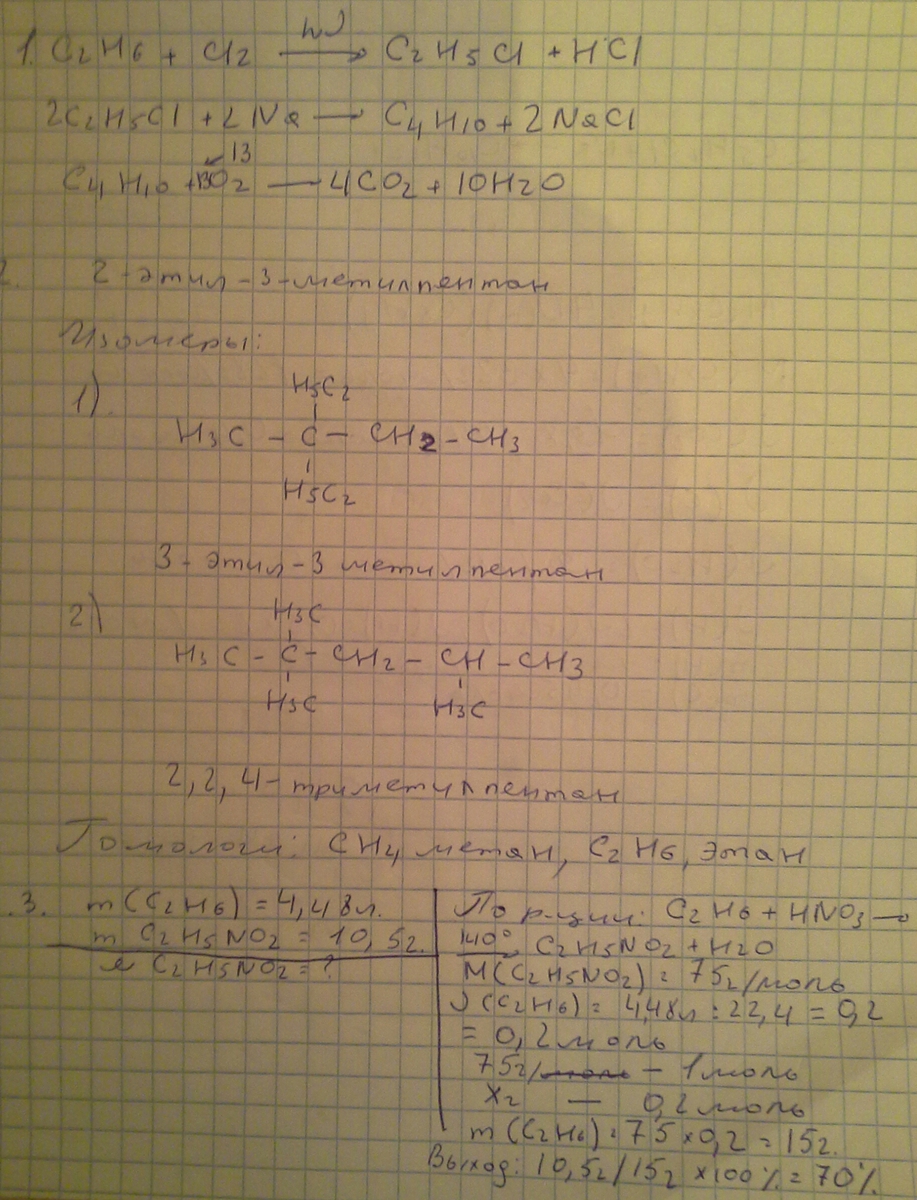 1. C2H6 + Cl2 hν⟶ C2H5Cl + HCl
2C2H5Cl + 2Na ⟶ C4H10 + 2NaCl
13
C4H10 + 13O2 — 4CO2 + 10H2O
2. 2-этил-3-метилпентан
Изомеры:
1)
H5C2
H3C - C - CH2 - CH3
H5C2
3-этил-3 метилпентан
2)
H3C
H3C - C - CH2 - CH - CH3
H3C H3C
2,2,4-триметилпентан
Гомологи: CH4 метан, C2H6, этан
3. m(C2H6) = 4,48л.
m C2H5NO2 = 10,5г.
C2H5NO2 = ?
По р-ции: C2H6 + HNO3 →
140° C2H5NO2 + H2O
M(C2H5NO2) = 75г/моль
ν(C2H6) = 4,48л : 22,4 = 0,2
= 0,2 моль
75г/моль – 1 моль
xг — 0,2 моль
m(C2H6) = 75 × 0,2 = 15г.
Выход: 10,5г/15г × 100% = 70%